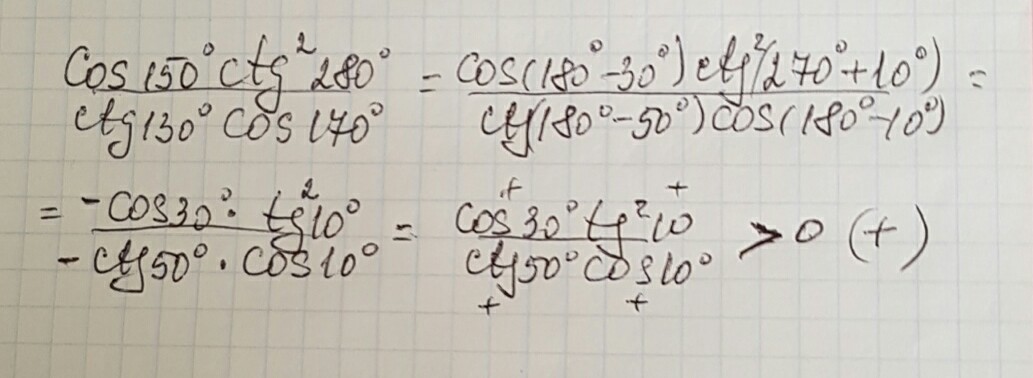 cos150° ctg²280° / ctg130° cos170° = cos(180°-30°) ctg²(270°+10°) / ctg(180°-50°) cos(180°-10°) =
= -cos30° · tg²10° / -ctg50° · cos10° = cos30° tg²10 / ctg50° cos10° > 0 (+)
+ +
+ +